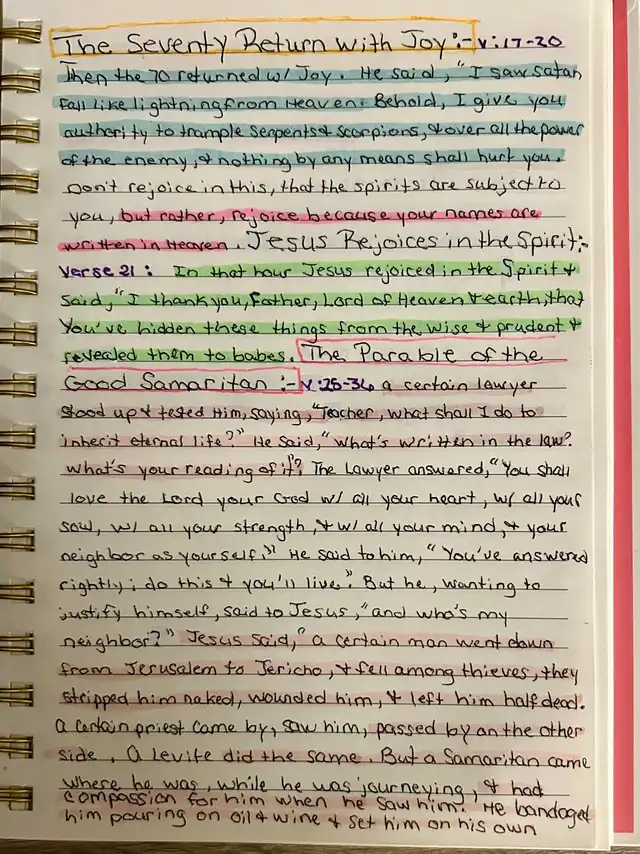 The Seventy Return with Joy:- v:17-20
Then the 70 returned w/ Joy. He said, "I saw Satan
fall like lightning from Heaven. Behold, I give you
authority to trample serpents & scorpions, & over all the power
of the enemy, & nothing by any means shall hurt you.
Don't rejoice in this, that the spirits are subject to
you, but rather, rejoice because your names are
written in Heaven. Jesus Rejoices in the Spirit:-
Verse 21: In that hour Jesus rejoiced in the Spirit &
said, "I thank you, Father, Lord of Heaven & earth, that
You've hidden these things from the wise & prudent &
revealed them to babes. The Parable of the
Good Samaritan:- v:25-36 a certain lawyer
stood up & tested Him, saying, "Teacher, what shall I do to
inherit eternal life?" He said, "What's written in the law?
What's your reading of it"? The Lawyer answered, "You shall
love the Lord your God w/ all your heart, w/ all your
soul, w/ all your strength, & w/ all your mind, & your
neighbor as yourself." He said to him, "You've answered
rightly; do this & you'll live." But he, wanting to
justify himself, said to Jesus, "and who's my
neighbor?" Jesus said, "a certain man went down
from Jerusalem to Jericho, & fell among thieves, they
stripped him naked, wounded him, & left him half dead.
A certain priest came by, saw him, passed by on the other
side. A Levite did the same. But a Samaritan came
where he was, while he was journeying, & had
compassion for him when he saw him. He bandaged
him pouring on oil & wine & set him on his own